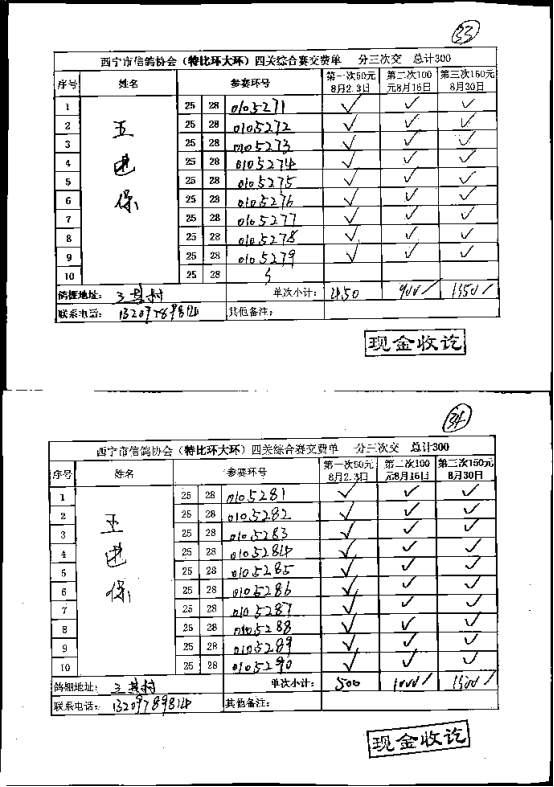 33
西宁市信鸽协会（特比环大环）四关综合赛交费单 分三次交 总计300
序号 姓名 参赛环号 第一次50元8月2.3日 第二次100元8月16日 第三次150元8月30日
1 25 28 0105271 ✓ ✓ ✓
2 25 28 0105272 ✓ ✓ ✓
3 25 28 0105273 ✓ ✓ ✓
4 25 28 0105274 ✓ ✓ ✓
5 25 28 0105275 ✓ ✓ ✓
6 25 28 0105276 ✓ ✓ ✓
7 25 28 0105277 ✓ ✓ ✓
8 25 28 0105278 ✓ ✓ ✓
9 25 28 0105279 ✓ ✓ ✓
10 25 28
王 保
鸽棚地址： 村 单次小计： 450 900 1350
联系电话： 其他备注：
现金收讫
34
西宁市信鸽协会（特比环大环）四关综合赛交费单 分三次交 总计300
序号 姓名 参赛环号 第一次50元8月2.3日 第二次100元8月16日 第三次150元8月30日
1 25 28 0105281 ✓ ✓ ✓
2 25 28 0105282 ✓ ✓ ✓
3 25 28 0105283 ✓ ✓ ✓
4 25 28 0105284 ✓ ✓ ✓
5 25 28 0105285 ✓ ✓ ✓
6 25 28 0105286 ✓ ✓ ✓
7 25 28 0105287 ✓ ✓ ✓
8 25 28 0105288 ✓ ✓ ✓
9 25 28 0105289 ✓ ✓ ✓
10 25 28 0105290 ✓ ✓ ✓
王 保
鸽棚地址： 村 单次小计： 500 1000 1500
联系电话： 其他备注：
现金收讫